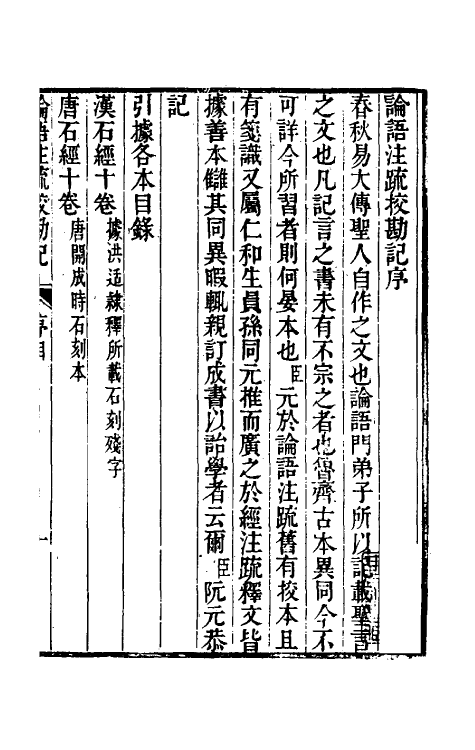 論語注疏挍勘記序
春秋易大傳聖人自作之文也論語門弟子所以記載聖言
之文也凡記言之書未有不宗之者也魯齊古本異同今不
可詳今所習者則何晏本也臣元於論語注疏舊有挍本且
有箋識又屬仁和生員孫同元推而廣之於經注疏釋文皆
據善本讎其同異暇輒親訂成書以詒學者云爾臣阮元恭
記
引據各本目錄
漢石經十卷 據洪适隸釋所載石刻殘字
唐石經十卷 唐開成時石刻本
論語注疏校勘記 序目 一